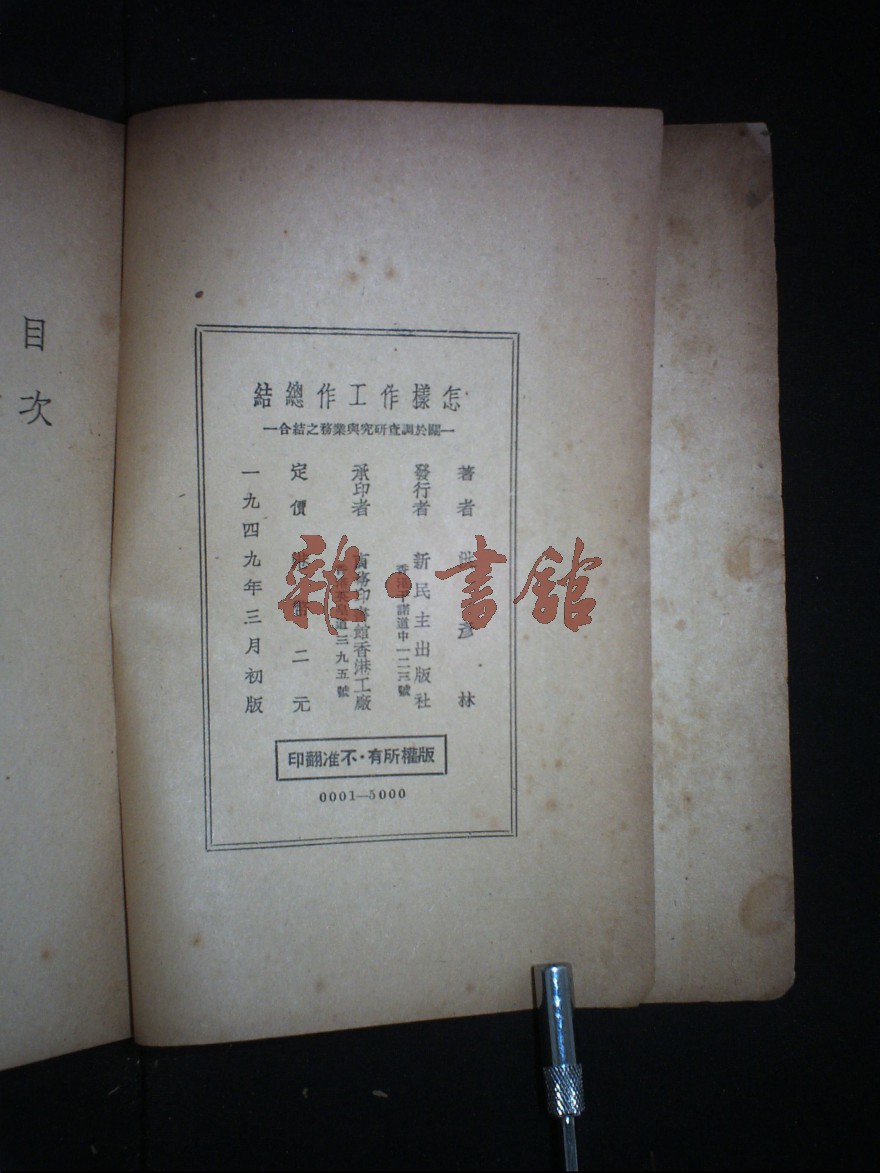 怎樣作工作總結
—關於調查研究與業務之結合—
著者 彥林
發行者 新民主出版社
香港干諾道中一二三號
承印者 商務印書館香港工廠
香港英皇道三九五號
定價 港幣二元
一九四九年三月初版
版權所有・不准翻印
0001—5000
目次
雜・書館